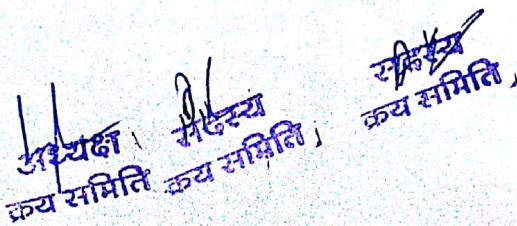 अध्यक्ष
क्रय समिति
सदस्य
क्रय समिति,
सदस्य
क्रय समिति,